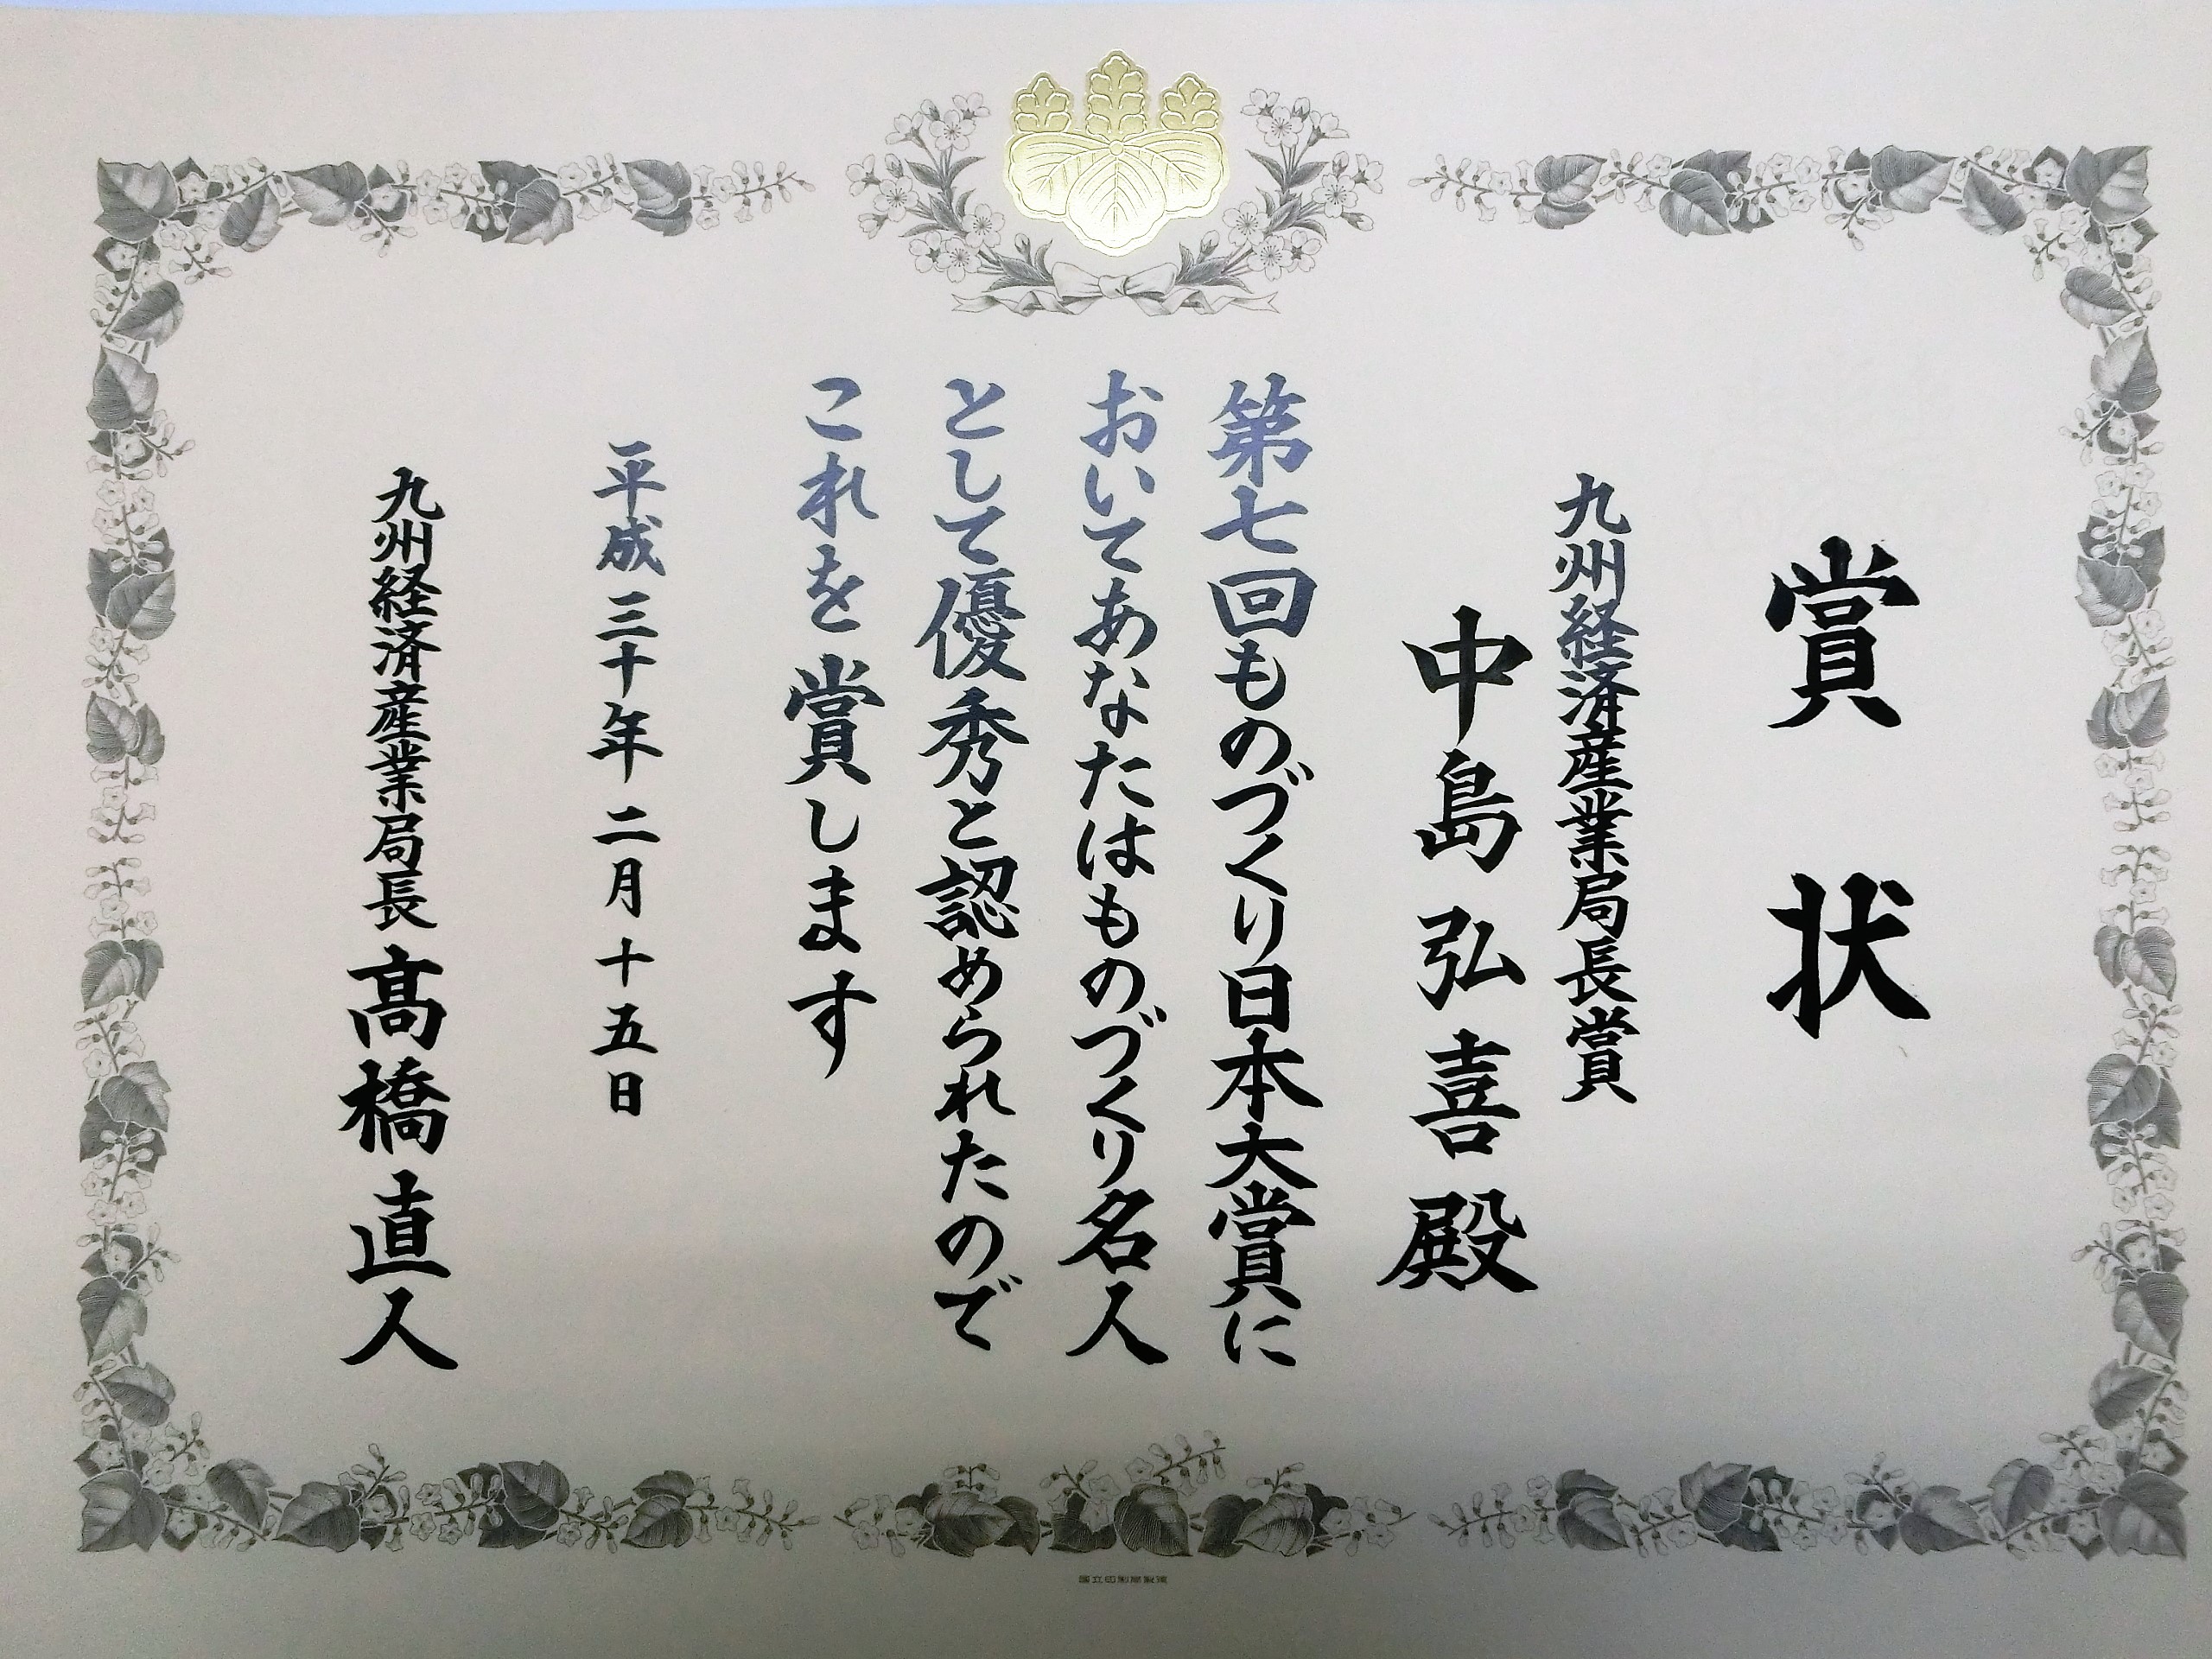 賞状
九州経済産業局長賞
中島弘喜殿
第七回ものづくり日本大賞に
おいてあなたはものづくり名人
として優秀と認められたので
これを賞します
平成三十年二月十五日
九州経済産業局長髙橋直人
國立印刷局製造